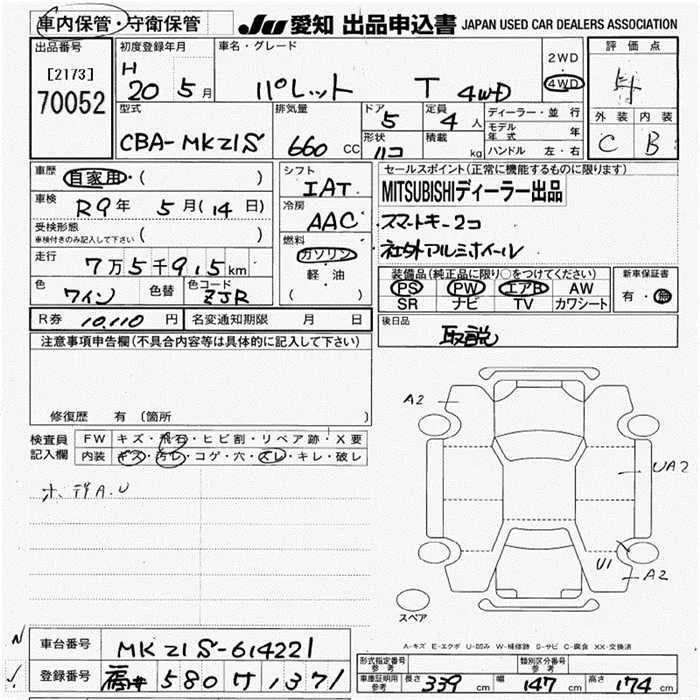 車内保管・守衛保管 JU 愛知 出品申込書 JAPAN USED CAR DEALERS ASSOCIATION
出品番号 初度登録年月 車名・グレード 2WD 評価点
[2173] H 20 5月 パレット T 4WD 4WD
70052 型式 排気量 ドア 定員 ディーラー・並行 外装 内装
CBA-MKZ1S 660 CC 5 4人 モデル年式 年 C B
形状 ハコ 積載 kg ハンドル 左・右
車歴 自家用・( ) シフト IAT セールスポイント(正常に機能するものに限ります)
車検 R9年 5月(14日) 冷房 AAC MITSUBISHIディーラー出品
受検形態 ( ) スマートキー2コ
車検付きのみ記入して下さい 燃料 社外アルミホイール
走行 7万5千915km ガソリン・ 装備品(純正品に限り○をつけてください) 新車保証書
軽油 PS PW エアB AW 有・無
色 ワイン 色替 色コード ZJR ( ) SR ナビ TV カワシート
R券 10,110円 名変通知期限 月 日 後日品
取説
注意事項申告欄(不具合内容等は具体的に記入して下さい)
A2
修復歴 有 (箇所
検査員 FW キズ・飛石・ヒビ割・リペア跡・X要
記入欄 内装 キズ・汚レ・コゲ・穴・スレ・キレ・破レ
UA2
U1
A2
スペア
A-キズ E-エクボ U-凹み W-補修跡 S-サビ C-腐食 XX-交換済
車台番号 MKZ1S-614221
型式指定番号 参考 類別区分番号 参考
登録番号 福井 580 ケ 1371
車庫証明用 参考 長さ 339 cm 幅 147 cm 高さ 174 cm